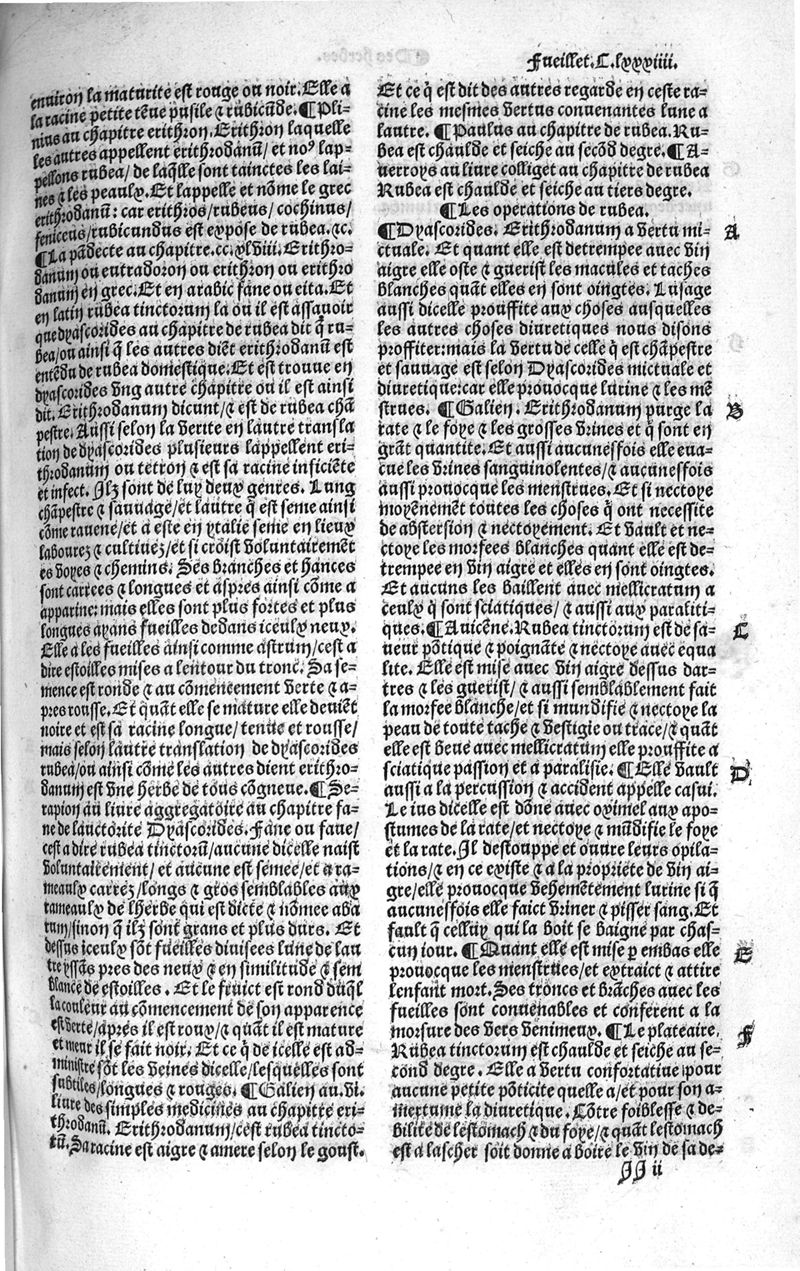 Fueillet.C.lxxxiiii.
enuiron la maturite est rouge ou noir. Elle a
la racine petite tẽue pusile & rubicũde. ¶Pli-
nius au chapitre erithron. Erithron laquelle
les autres appellent erithrodanũ/ et noꝰ lap-
pellons rubea/ de laq̃lle sont tainctes les lai-
nes & les peaulx. Et lappelle et nõme le grec
erithrodanũ: car erithros/rubeus/ cochinus/
feniceus/rubicundus est expose de rubea. &c.
¶La pãdecte au chapitre.cc.xlviii. Erithro-
danum ou eutradoron ou erithron ou erithro
danum en grec. Et en arabic fane ou eita. Et
en latin rubea tinctorum la ou il est assauoir
que dyascorides au chapitre de rubea dit q̃ ru-
bea/ou ainsi q̃ les autres diẽt erithrodanũ est
entẽdu de rubea domestique. Et est trouue en
dyascorides vng autre chapitre ou il est ainsi
dit. Erithrodanum dicunt/& est de rubea chã
pestre. Aussi selon la verite en lautre transla
tion de dyascorides plusieurs lappellent eri-
throdanum ou tetron & est sa racine inficiete
et infect. Ilz sont de luy deux genres. Lung
chãpestre & sauuage/et lautre q̃ est seme ainsi
cõme rauene/et a este en ytalie seme en lieux
labourez & cultiuez/et si croist voluntairemẽt
es voyes & chemins. Ses branches et hances
sont carrees & longues et aspres ainsi cõme a
apparine: mais elles sont plus fortes et plus
longues ayans fueilles dedans iceulx neux.
Elle a les fueilles ainsi comme astrum/cest a
dire estoilles mises a lentour du tronc. Sa se-
mence est ronde & au cõmencement verte & a-
pres rousse. Et quãt elle se mature elle deuiẽt
noire et est sa racine longue/ tenue et rousse/
mais selon lautre translation de dyascorides
rubea/ou ainsi cõme les autres dient erithro-
danum est vne herbe de tous cõgneue. ¶Se-
rapion au liure aggregatoire au chapitre fa-
ne de lauctorite Dyascorides. Fane ou faue/
cest a dire rubea tinctorũ/aucune dicelle naist
voluntairement/ et aucune est semee/et a ra-
meaulx carrez/longs & gros semblables aux
rameaulx de lherbe qui est dicte & nõmee aba
rum/sinon q̃ ilz sont grans et plus durs. Et
dessus iceulx sõt fueilles diuisees lune de lau
tre yssãs pres des neux & en similitude & sem
blance de estoilles. Et le fruict est rond duq̃l
la couleur au cõmencement de son apparence
est verte/apres il est roux/& quãt il est mature
et meur il se fait noir. Et ce q̃ de icelle est ad-
ministre sõt les veines dicelle/lesquelles sont
subtiles/longues & rouges. ¶Galien au.vi.
liure des simples medicines au chapitre eri-
throdanũ. Erithrodanum/cest rubea tincto-
rũ. Sa racine est aigre & amere selon le goust.
Et ce q̃ est dit des autres regarde en ceste ra-
cine les mesmes vertus conuenantes lune a
lautre. ¶Paulus au chapitre de rubea. Ru-
bea est chaulde et seiche au secõd degre. ¶A-
uerroys au liure colliget au chapitre de rubea
Rubea est chaulde et seiche au tiers degre.
¶Les operations de rubea.
¶Dyascorides. Erithrodanum a vertu mi- A
ctuale. Et quant elle est detrempee auec vin
aigre elle oste & guerist les macules et taches
blanches quãt elles en sont oingtes. Lusage
aussi dicelle prouffite aux choses ausquelles
les autres choses diuretiques nous disons
proffiter: mais la vertu de celle q̃ est chãpestre
et sauuage est selon Dyascorides mictuale et
diuretique: car elle prouocque lurine & les mẽ
strues. ¶Galien. Erithrodanum purge la B
rate & le foye & les grosses vrines et q̃ sont en
grãt quantite. Et aussi aucunesfois elle eua-
cue les vrines sanguinolentes/& aucunesfois
aussi prouocque les menstrues. Et si nectoye
moyẽnemẽt toutes les choses q̃ ont necessite
de abstersion & nectoyement. Et vault et ne-
ctoye les morfees blanches quant elle est de-
trempee en vin aigre et elles en sont oingtes.
Et aucuns les baillent auec mellicratum a
ceulx q̃ sont sciatiques/ & aussi aux paraliti-
ques. ¶Auicẽne. Rubea tinctorum est de sa- C
ueur põtique & poignãte & nectoye auec equa
lite. Elle est mise auec vin aigre dessus dar-
tres & les guerist/ & aussi semblablement fait
la morfee blanche/et si mundifie & nectoye la
peau de toute tache & vestigie ou trace/& quãt
elle est beue auec mellicratum elle prouffite a
sciatique passion et a paralisie. ¶Elle vault D
aussi a la percussion & accident appelle casui.
Le ius dicelle est dõne auec oximel aux apo-
stumes de la rate/et nectoye & mũdifie le foye
et la rate. Il destouppe et ouure leurs opila-
tions/& en ce existe & a la propriete de vin ai-
gre/elle prouocque vehemẽtement lurine si q̃
aucunesfois elle faict vriner & pisser sang. Et
fault q̃ celluy qui la boit se baigne par chas-
cun iour. ¶Quant elle est mise p embas elle E
prouocque les menstrues/et extraict & attire
lenfant mort. Ses troncs et brãches auec les
fueilles sont conuenables et conferent a la
morsure des vers venimeux. ¶Le plateaire. F
Rubea tinctorum est chaulde et seiche au se-
cond degre. Elle a vertu confortatiue pour
aucune petite põticite quelle a/et pour son a-
mertume la diuretique. Cõtre foiblesse & de-
bilite de lestomach & du foye/& quãt lestomach
est a lascher soit donne a boire le vin de sa de-
JJ ii